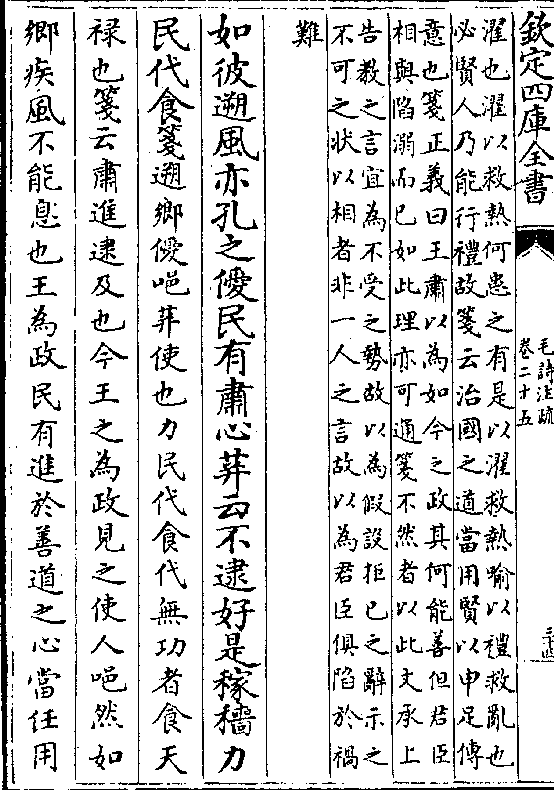 欽定四庫全書
毛詩注疏
卷二十五
濯也濯以救熱何患之有是以濯救熱喻以禮救亂也
必賢人乃能行禮故箋云治國之道當用賢以申足傳
意也箋正義曰王肅以為如今之政其何能善但君臣
相與陷溺而已如此理亦可通箋不然者以此文承上
告教之言宜為不受之勢故以為假設拒已之辭示之
不可之狀以相者非一人之言故以為君臣俱陷於禍
難
如彼遡風亦孔之僾民有肅心荓云不逮好是稼穡力
民代食箋遡鄉僾唈荓使也力民代食代無功者食天
禄也箋云肅進逮及也今王之為政見之使人唈然如
鄉疾風不能息也王為政民有進於善道之心當任用